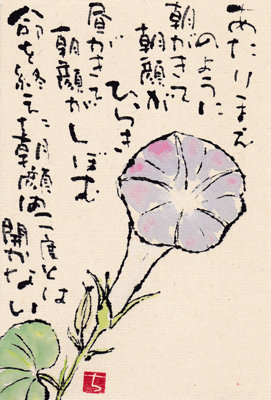 あたりまえ
のように
朝がきて
朝顔が
ひらき
昼がきて
朝顔が
しぼむ
命を終えた朝顔は二度とは
開かない
ち